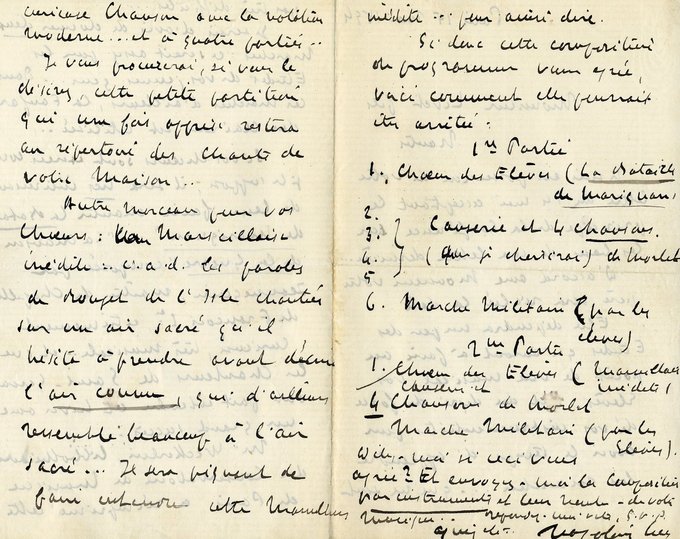 curieuse Chanson avec la notation
moderne... et à quatre parties...
Je vous procurerai, si vous le
désirez, cette petite partition
qui une fois apprise restera
au répertoire des Chants de
votre Maison...
Autre morceau pour vos
Choeurs : Une Marseillaise
inédite... c. a. d. les paroles
de Rouget de l'Isle chantées
sur un air sacré qu'il
hésita à prendre avant
l'air connu, qui d'ailleurs
ressemble beaucoup à l'air
sacré... Il sera piquant de
faire entendre cette Marseillaise
inédite... pour ainsi dire.
Si donc cette composition
de programme vous agrée,
voici comment elle pourrait
être arrêtée :
1re Partie
1. Choeur des Elèves (La Bataille
de Marignan)
2.
3. Causerie et 4 chansons.
4. (que je choisirai) de Morlet
5
6. Marche Militaire (par les
élèves)
2me Partie
1. Choeur des Elèves (Marseillaise
Causerie et inédite)
4 Chansons de Morlet
Marche Militaire (par les
Elèves).
moi si ceci vous
agrée ? Et envoyez-moi la composition
par instruments et leur nombre de votre
musique... s.v.p.